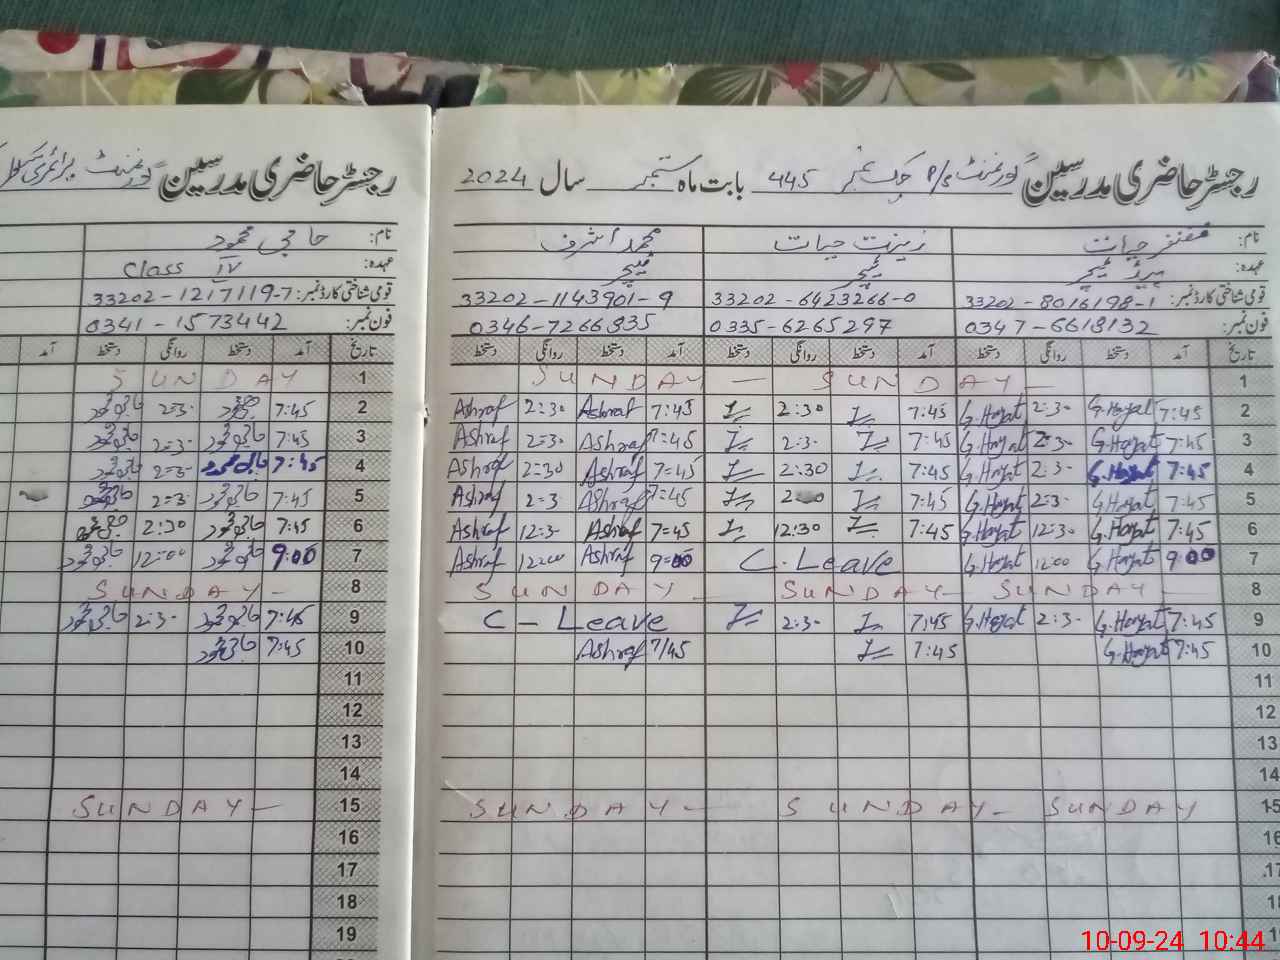 رجسٹر حاضری مدرسین گورنمنٹ P/S چک نمبر 445 بابت ماہ ستمبر سال 2024
نام: غضنفر حیات زینت حیات محمد اشرف
عہدہ: ہیڈ ٹیچر ٹیچر ٹیچر
قومی شناختی کارڈ نمبر: 33202-8016198-1 33202-6423266-0 33202-1143901-9
فون نمبر: 0347-6618132 0335-6265297 0346-7266835
تاریخ آمد دستخط روانگی دستخط آمد دستخط روانگی دستخط آمد دستخط روانگی دستخط
SUNDAY — SUNDAY — 1
Ashraf 2:30 Ashraf 7:45 2:30 7:45 G.Hayat 2:30 G.Hayat 7:45 2
Ashraf 2:30 Ashraf 7:45 2:30 7:45 G.Hayat 2:30 G.Hayat 7:45 3
Ashraf 2:30 Ashraf 7=45 2:30 7:45 G.Hayat 2:30 G.Hayat 7:45 4
Ashraf 2:30 Ashraf 7=45 7:45 G.Hayat 2:30 G.Hayat 7:45 5
Ashraf 12:30 Ashraf 7=45 12:30 7:45 G.Hayat 12:30 G.Hayat 7:45 6
Ashraf 12:00 Ashraf 9=00 C.Leave G.Hayat 12:00 G.Hayat 9:00 7
SUNDAY — SUNDAY — SUNDAY — 8
C - Leave 2:30 7:45 G.Hayat 2:30 G.Hayat 7:45 9
Ashraf 7/45 7:45 G.Hayat 7:45 10
11
12
13
14
SUNDAY — SUNDAY — SUNDAY 15
16
17
18
رجسٹر حاضری مدرسین گورنمنٹ پرائمری سکول
نام: حاجی محمود
عہدہ: Class IV
قومی شناختی کارڈ نمبر: 33202-1217119-7
فون نمبر: 0341-1573442
تاریخ آمد دستخط روانگی دستخط آمد
SUNDAY 1
2:30 7:45 2
2:30 7:45 3
2:30 7:45 4
2:30 7:45 5
2:30 7:45 6
12:00 9:00 7
SUNDAY — 8
2:30 7:45 9
7:45 10
11
12
13
14
SUNDAY — 15
16
17
18
19
10-09-24 10:44